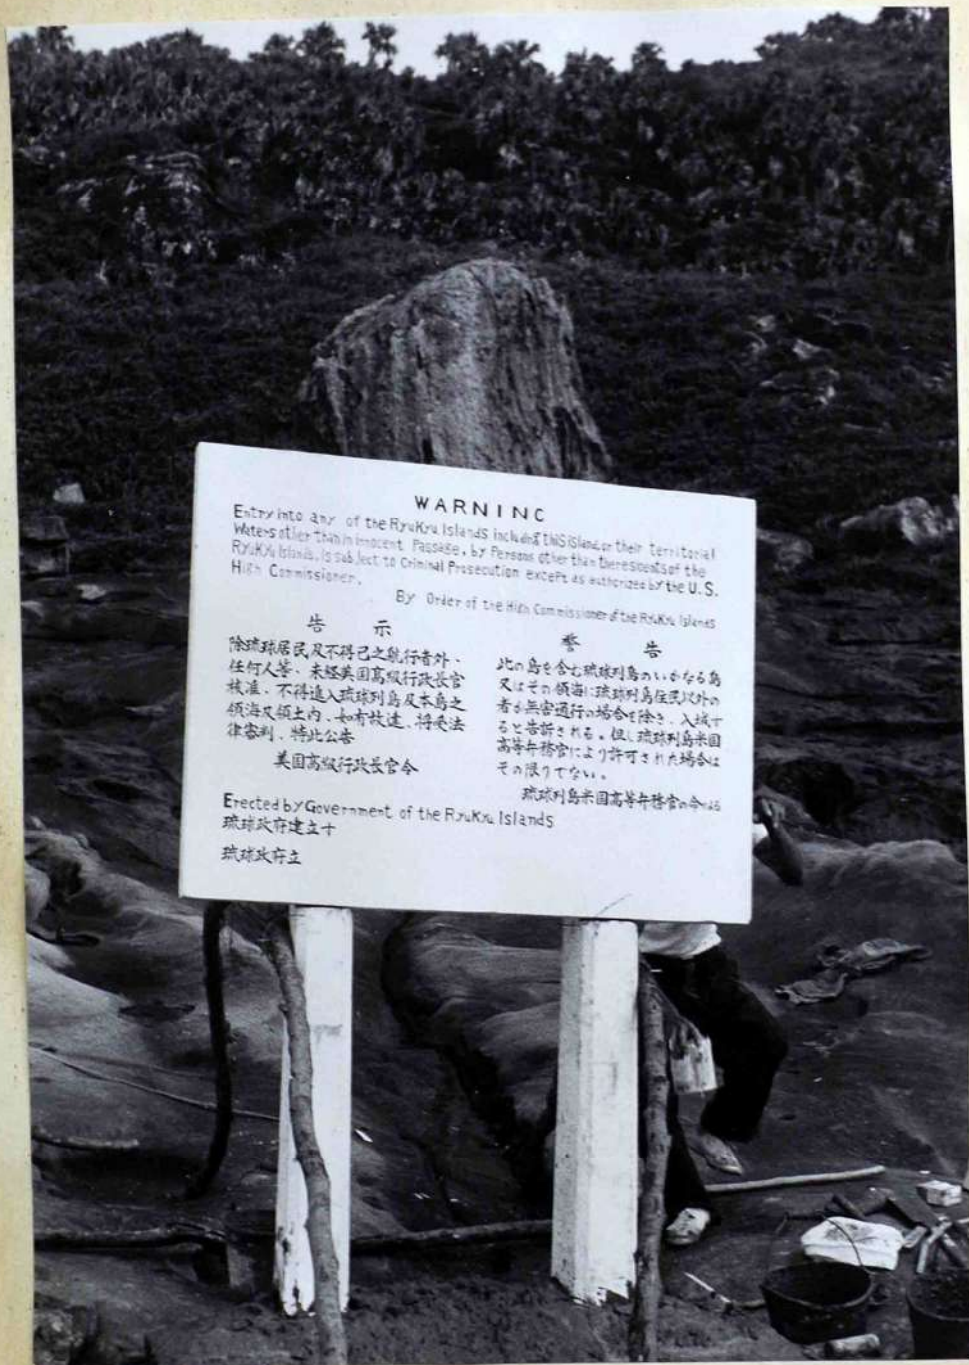 WARNINC
Entry into any of the RyuKyu Islands including this island or their territorial
Waters other than in innocent Passage, by Persons other than the residents of the
RyuKyu Islands, is subject to Criminal Prosecution except as authorized by the U.S.
High Commissioner.
By Order of the High Commissioner of the RyuKyu Islands
告示
除琉球居民及不得已之航行者外、
任何人等、未経美国高級行政長官
核准、不得進入琉球列島及本島之
領海及領土内、如有故違、将受法
律審判、特此公告
美国高級行政長官令
警告
此の島を含む琉球列島のいかなる島
又はその領海に琉球列島住民以外の
者が無害通行の場合を除き、入域す
ると告訴される。但し琉球列島米国
高等弁務官により許可された場合は
その限りでない。
琉球列島米国高等弁務官の命による
Erected by Government of the RyuKyu Islands
琉球政府建立十
琉球政府立